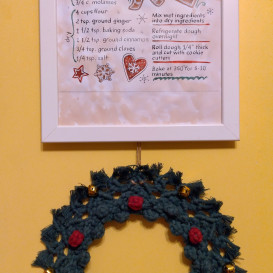 3/4 c. molasses
4 cups flour
2 tsp. ground ginger
1 1/2 tsp. baking soda
2 1/2 tsp. ground cinnamon
3/4 tsp. ground cloves
1/4 tsp. salt
Mix wet ingredients
into dry ingredients
Refrigerate dough
overnight
Roll dough 1/4" thick
and cut with cookie
cutters
Bake at 350 for 8-10
minutes